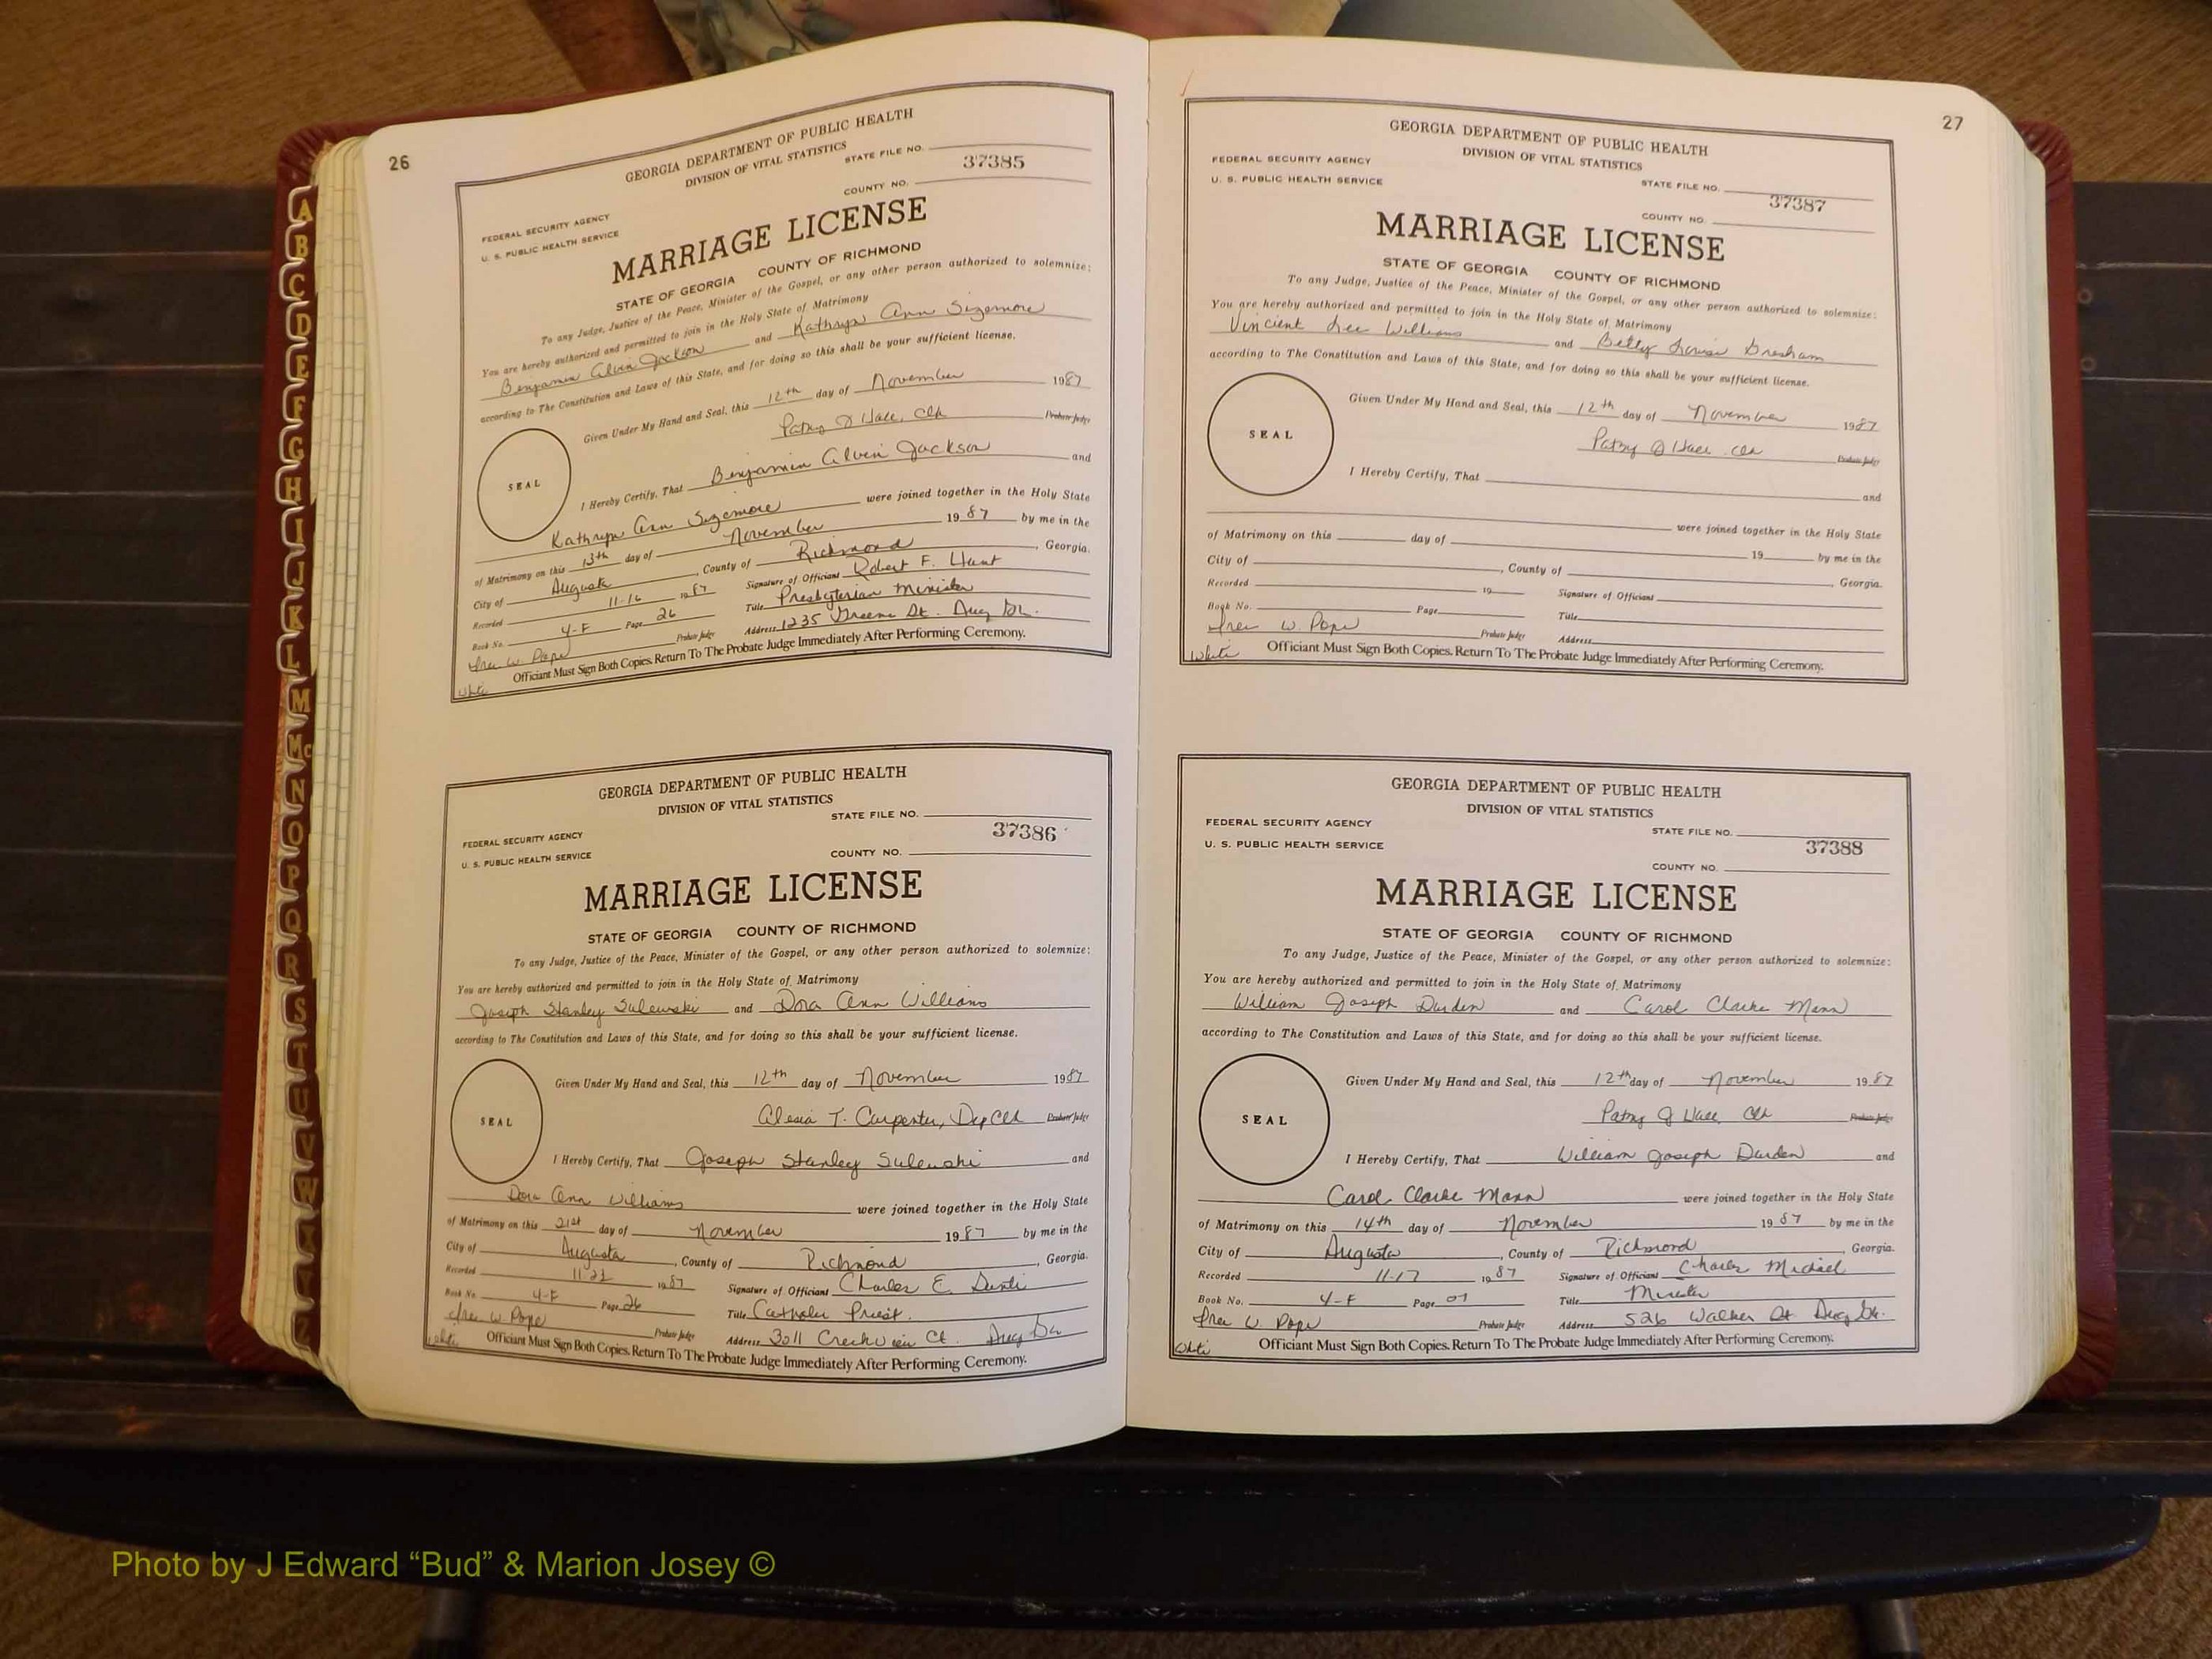 26
GEORGIA DEPARTMENT OF PUBLIC HEALTH
DIVISION OF VITAL STATISTICS
STATE FILE NO.
37385
COUNTY NO.
FEDERAL SECURITY AGENCY
U. S. PUBLIC HEALTH SERVICE
MARRIAGE LICENSE
STATE OF GEORGIA COUNTY OF RICHMOND
To any Judge, Justice of the Peace, Minister of the Gospel, or any other person authorized to solemnize:
You are hereby authorized and permitted to join in the Holy State of Matrimony
Benjamin Alvin Jackson and Kathryn Ann Sizemore
according to The Constitution and Laws of this State, and for doing so this shall be your sufficient license.
Given Under My Hand and Seal, this 12th day of November 1987
Patsy Clk Probate Judge
SEAL
I Hereby Certify, That Benjamin Alvin Jackson and
Kathryn Ann Sizemore were joined together in the Holy State
of Matrimony on this 13th day of November 1987 by me in the
City of Augusta, County of Richmond, Georgia.
Recorded 11-16 1987 Signature of Officiant Robert F. Hunt
Book No. 4-F Page 26 Title Presbyterian Minister
W. Pope Probate Judge Address 1235 Greene St. Aug Ga.
White Officiant Must Sign Both Copies. Return To The Probate Judge Immediately After Performing Ceremony.
GEORGIA DEPARTMENT OF PUBLIC HEALTH
DIVISION OF VITAL STATISTICS
STATE FILE NO.
37386
FEDERAL SECURITY AGENCY
U. S. PUBLIC HEALTH SERVICE
COUNTY NO.
MARRIAGE LICENSE
STATE OF GEORGIA COUNTY OF RICHMOND
To any Judge, Justice of the Peace, Minister of the Gospel, or any other person authorized to solemnize:
You are hereby authorized and permitted to join in the Holy State of Matrimony
Joseph Stanley Sulewski and Dora Ann Williams
according to The Constitution and Laws of this State, and for doing so this shall be your sufficient license.
Given Under My Hand and Seal, this 12th day of November 1987
Alesia T. Carpenter, Dep Clk Probate Judge
SEAL
I Hereby Certify, That Joseph Stanley Sulewski and
Dora Ann Williams were joined together in the Holy State
of Matrimony on this 21st day of November 1987 by me in the
City of Augusta, County of Richmond, Georgia.
Recorded 1987 Signature of Officiant Charles E.
Book No. 4-F Page 26 Title Catholic Priest.
W. Pope Probate Judge Address 3011 Creekview Ct. Aug Ga
White Officiant Must Sign Both Copies. Return To The Probate Judge Immediately After Performing Ceremony.
27
GEORGIA DEPARTMENT OF PUBLIC HEALTH
DIVISION OF VITAL STATISTICS
FEDERAL SECURITY AGENCY
U. S. PUBLIC HEALTH SERVICE
STATE FILE NO.
37387
COUNTY NO.
MARRIAGE LICENSE
STATE OF GEORGIA COUNTY OF RICHMOND
To any Judge, Justice of the Peace, Minister of the Gospel, or any other person authorized to solemnize:
You are hereby authorized and permitted to join in the Holy State of Matrimony
Vincient Lee Williams and Betty Louise Gresham
according to The Constitution and Laws of this State, and for doing so this shall be your sufficient license.
Given Under My Hand and Seal, this 12th day of November 1987
Patsy Clk Probate Judge
SEAL
I Hereby Certify, That and
were joined together in the Holy State
of Matrimony on this day of 19 by me in the
City of , County of , Georgia.
Recorded 19 Signature of Officiant
Book No. Page Title
W. Pope Probate Judge Address
White Officiant Must Sign Both Copies. Return To The Probate Judge Immediately After Performing Ceremony.
GEORGIA DEPARTMENT OF PUBLIC HEALTH
DIVISION OF VITAL STATISTICS
FEDERAL SECURITY AGENCY
U. S. PUBLIC HEALTH SERVICE
STATE FILE NO.
37388
COUNTY NO.
MARRIAGE LICENSE
STATE OF GEORGIA COUNTY OF RICHMOND
To any Judge, Justice of the Peace, Minister of the Gospel, or any other person authorized to solemnize:
You are hereby authorized and permitted to join in the Holy State of Matrimony
William Joseph Durden and Carol Clarke Mann
according to The Constitution and Laws of this State, and for doing so this shall be your sufficient license.
Given Under My Hand and Seal, this 12th day of November 1987
Patsy Clk Probate Judge
SEAL
I Hereby Certify, That William Joseph Durden and
Carol Clarke Mann were joined together in the Holy State
of Matrimony on this 14th day of November 1987 by me in the
City of Augusta, County of Richmond, Georgia.
Recorded 11-17 1987 Signature of Officiant Charles Michael
Book No. 4-F Page Title Minister
W. Pope Probate Judge Address 526 Walker St. Aug Ga.
White Officiant Must Sign Both Copies. Return To The Probate Judge Immediately After Performing Ceremony.
A
B
C
D
E
F
G
H
I
J
K
L
M
Mc
N
O
P
Q
R
S
T
U
V
W
X
Y
Z
Photo by J Edward “Bud” & Marion Josey ©